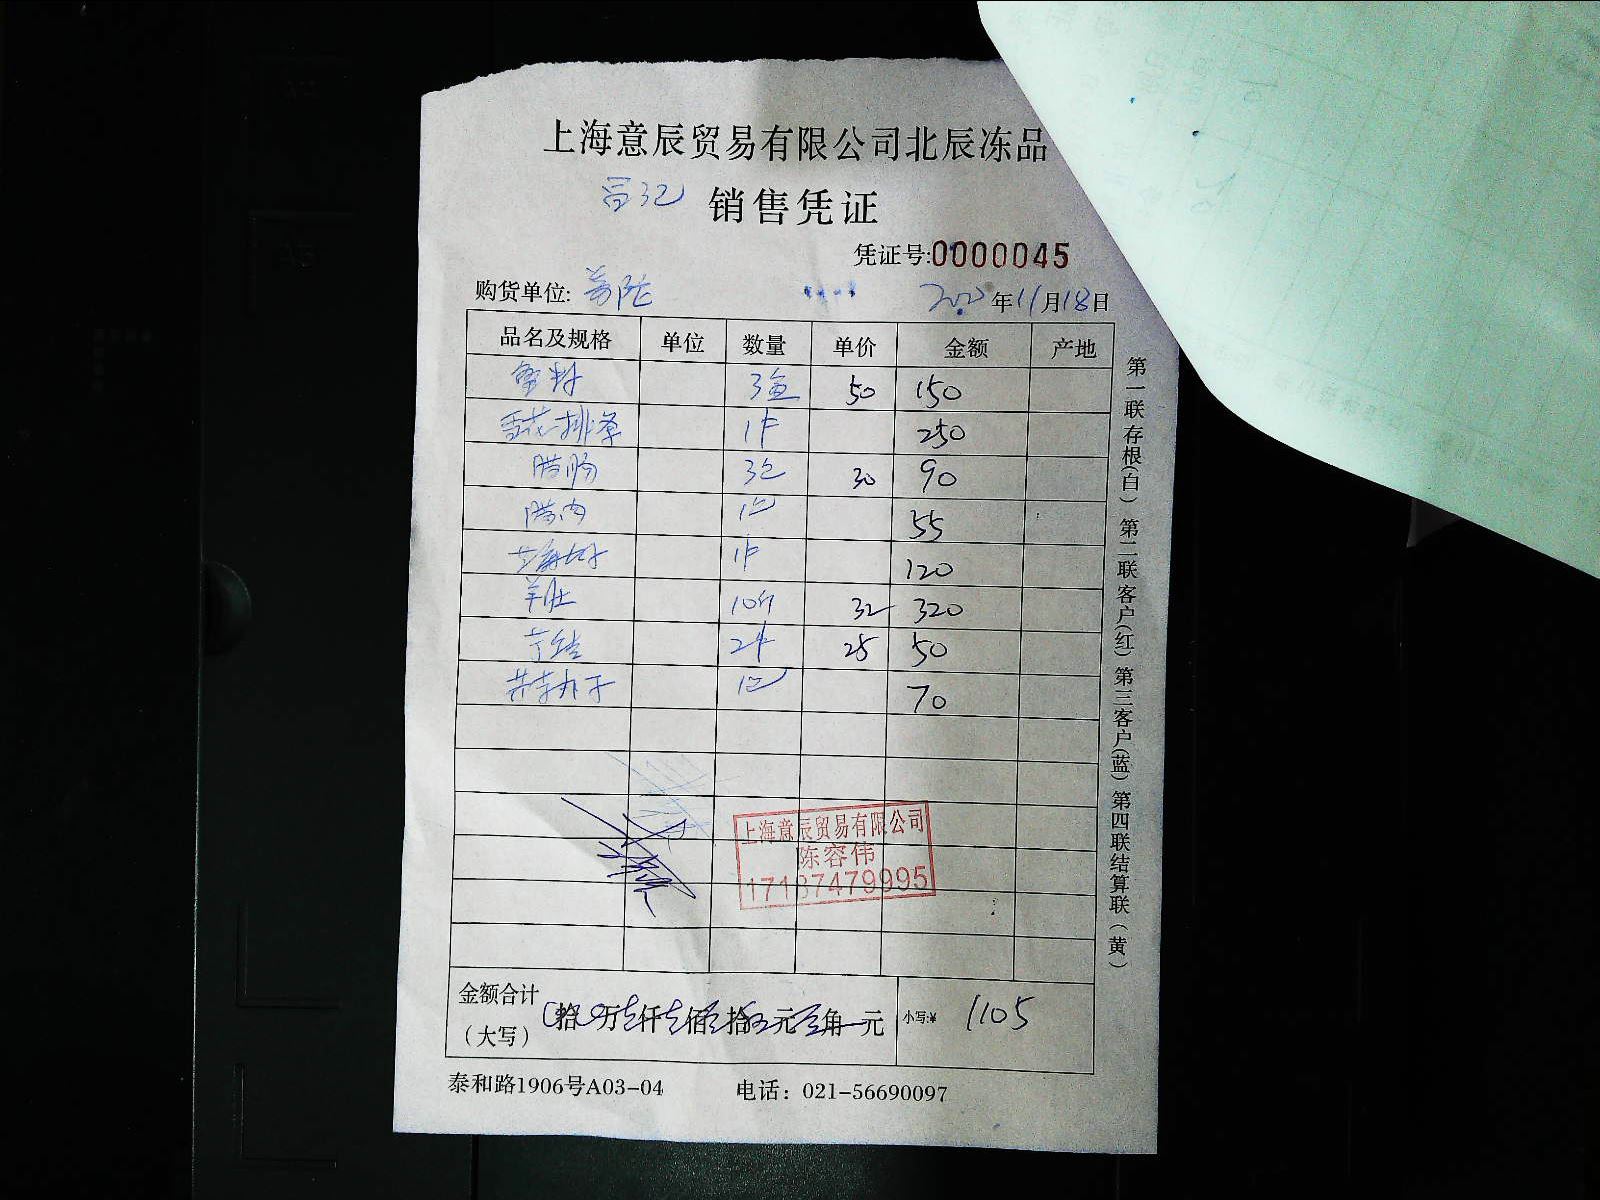 上海意辰贸易有限公司北辰冻品
销售凭证
凭证号:0000045
购货单位:
年11月18日
品名及规格 单位 数量 单价 金额 产地
3盒 50 150
雪花排 1件 250
腊肠 3包 30 90
腊肉 1包 55
1件 120
羊肚 10斤 32 320
2件 25 50
丸子 1包 70
上海意辰贸易有限公司
陈容伟
17187479995
金额合计
(大写) 拾 万 仟 佰 拾 元 角 元 小写:¥ 1105
泰和路1906号A03-04 电话：021-56690097
第一联存根(白) 第二联客户(红) 第三客户(蓝) 第四联结算联(黄)